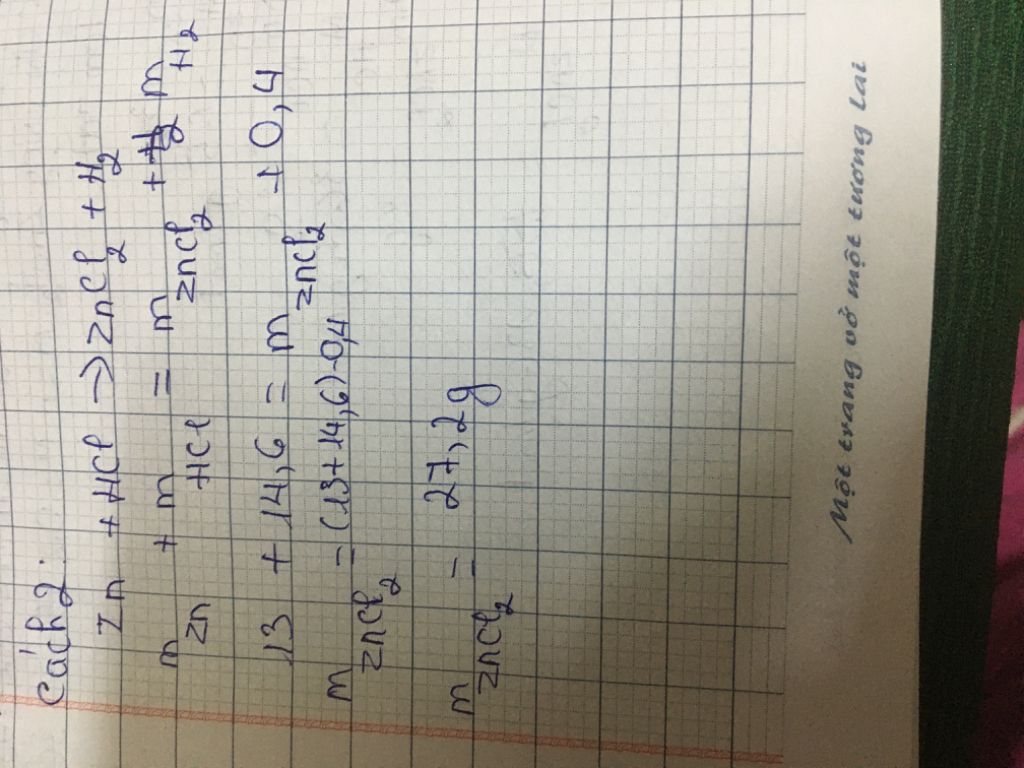 Cách 2:
Zn + HCl → ZnCl₂ + H₂
m Zn + m HCl = m ZnCl₂ + m H₂
13 + 14,6 = m ZnCl₂ + 0,4
m ZnCl₂ = (13+14,6)-0,4
m ZnCl₂ = 27,2g
Một trang vở một tương lai